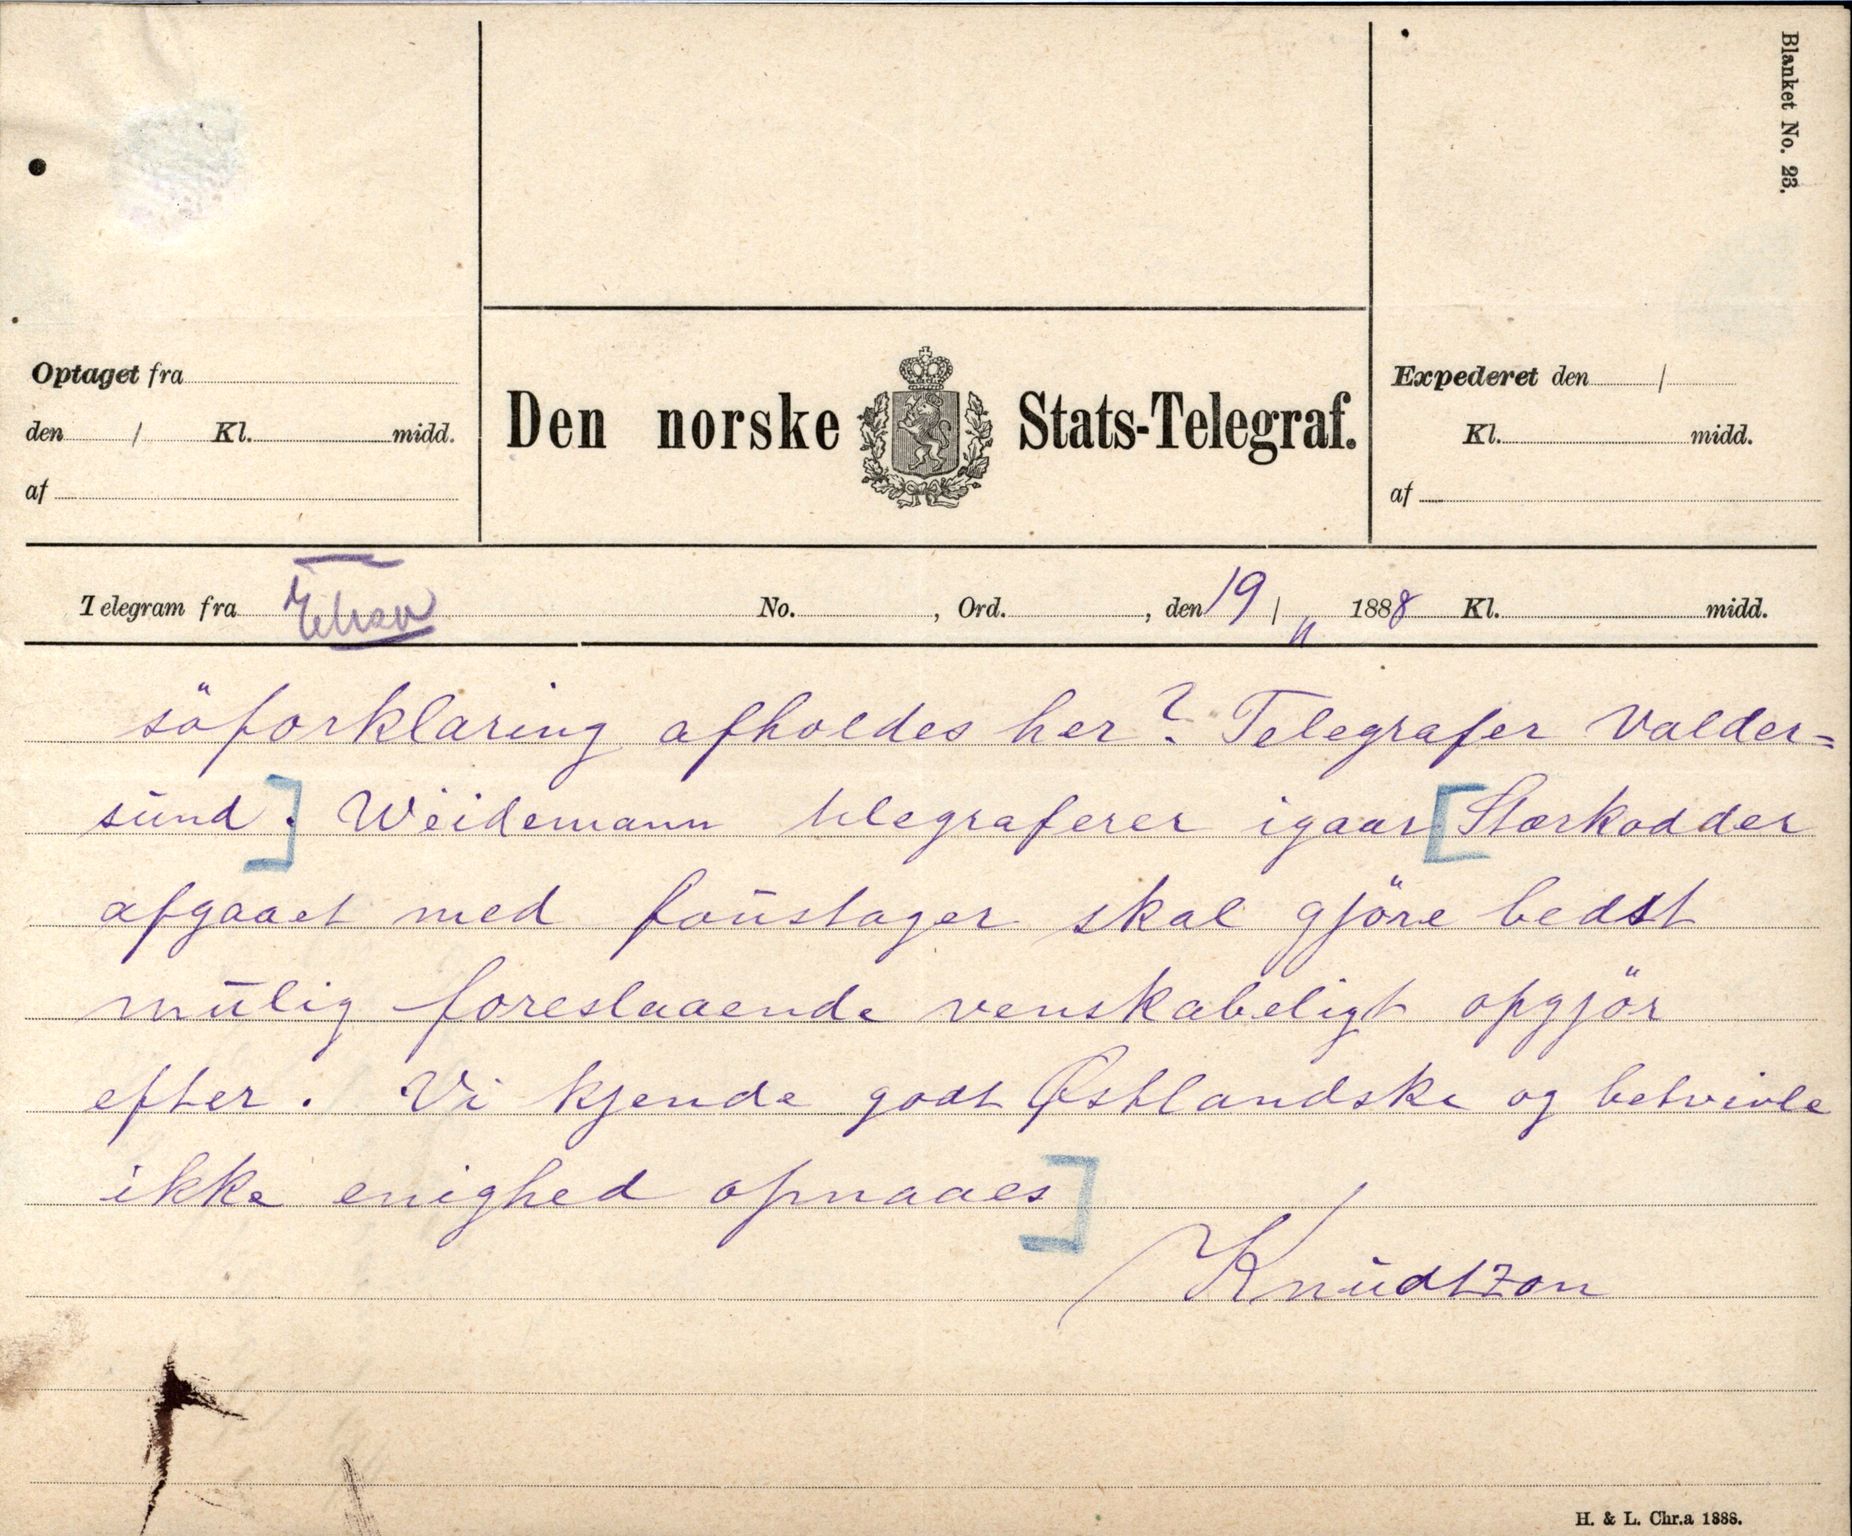 Blanket No. 23.
Optaget fra
den / Kl. midd.
af
Den norske Stats-Telegraf.
Expederet den /
Kl. midd.
af
Telegram fra No. , Ord. , den 19 / 11 1888 Kl. midd.
söforklaring afholdes her? Telegrafer Valder=
sund. Weidemann telegraferer igaar [Stærkodder
afgaaet med foustager skal gjöre bedst
mulig foreslaaende venskabeligt opgjör
efter. Vi kjende godt Østlandske og betvivle
ikke enighed opnaaes]
Knudtzon
H. & L. Chr.a 1888.